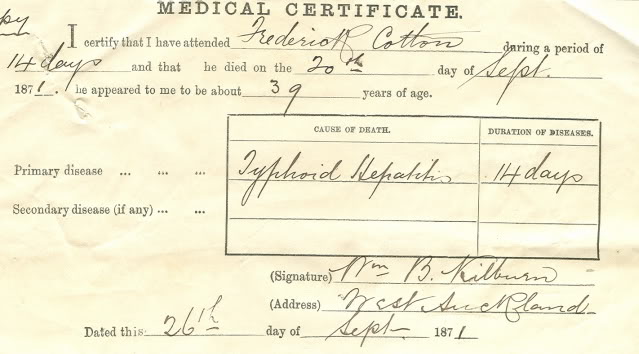 MEDICAL CERTIFICATE.
py
I certify that I have attended Frederick Cotton during a period of
14 days and that he died on the 20th day of Sept.
1871. he appeared to me to be about 39 years of age.
CAUSE OF DEATH. DURATION OF DISEASES.
Primary disease ... ... ... Typhoid Hepatitis 14 days
Secondary disease (if any) ... ...
(Signature) Wm B. Kilburn
(Address) West Auckland
Dated this 26th day of Sept 1871